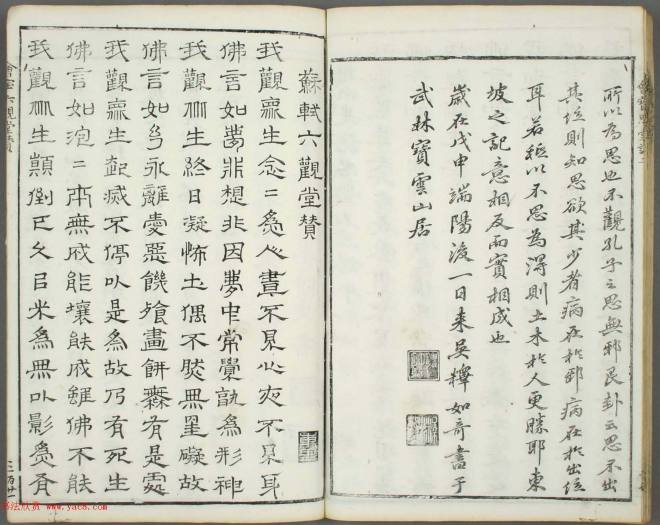 所以為思也不觀孔子之思無邪艮卦云思不出
其位則知思欲其少者病在於邪病在於出位
耳若秪以不思為得則土木於人更勝耶東
坡之記意相反而實相成也
歲在戊申端陽後一日來吳釋如奇書于
武林寶雲山居
蘇軾六觀堂贊
我觀眾生念念為人晝不見心夜不見耳
佛言如夢非想非因夢中常覺孰為形神
我觀眾生終日凝怖土偶不然無罣礙故
佛言如幻永離愛惡饑飡畫餅無有是處
我觀眾生起滅不停以是為故乃有死生
佛言如泡泡本無成能壞能成雖佛不能
我觀眾生顛倒已久以光為無以影為有
書法欣賞 www.yac8.com